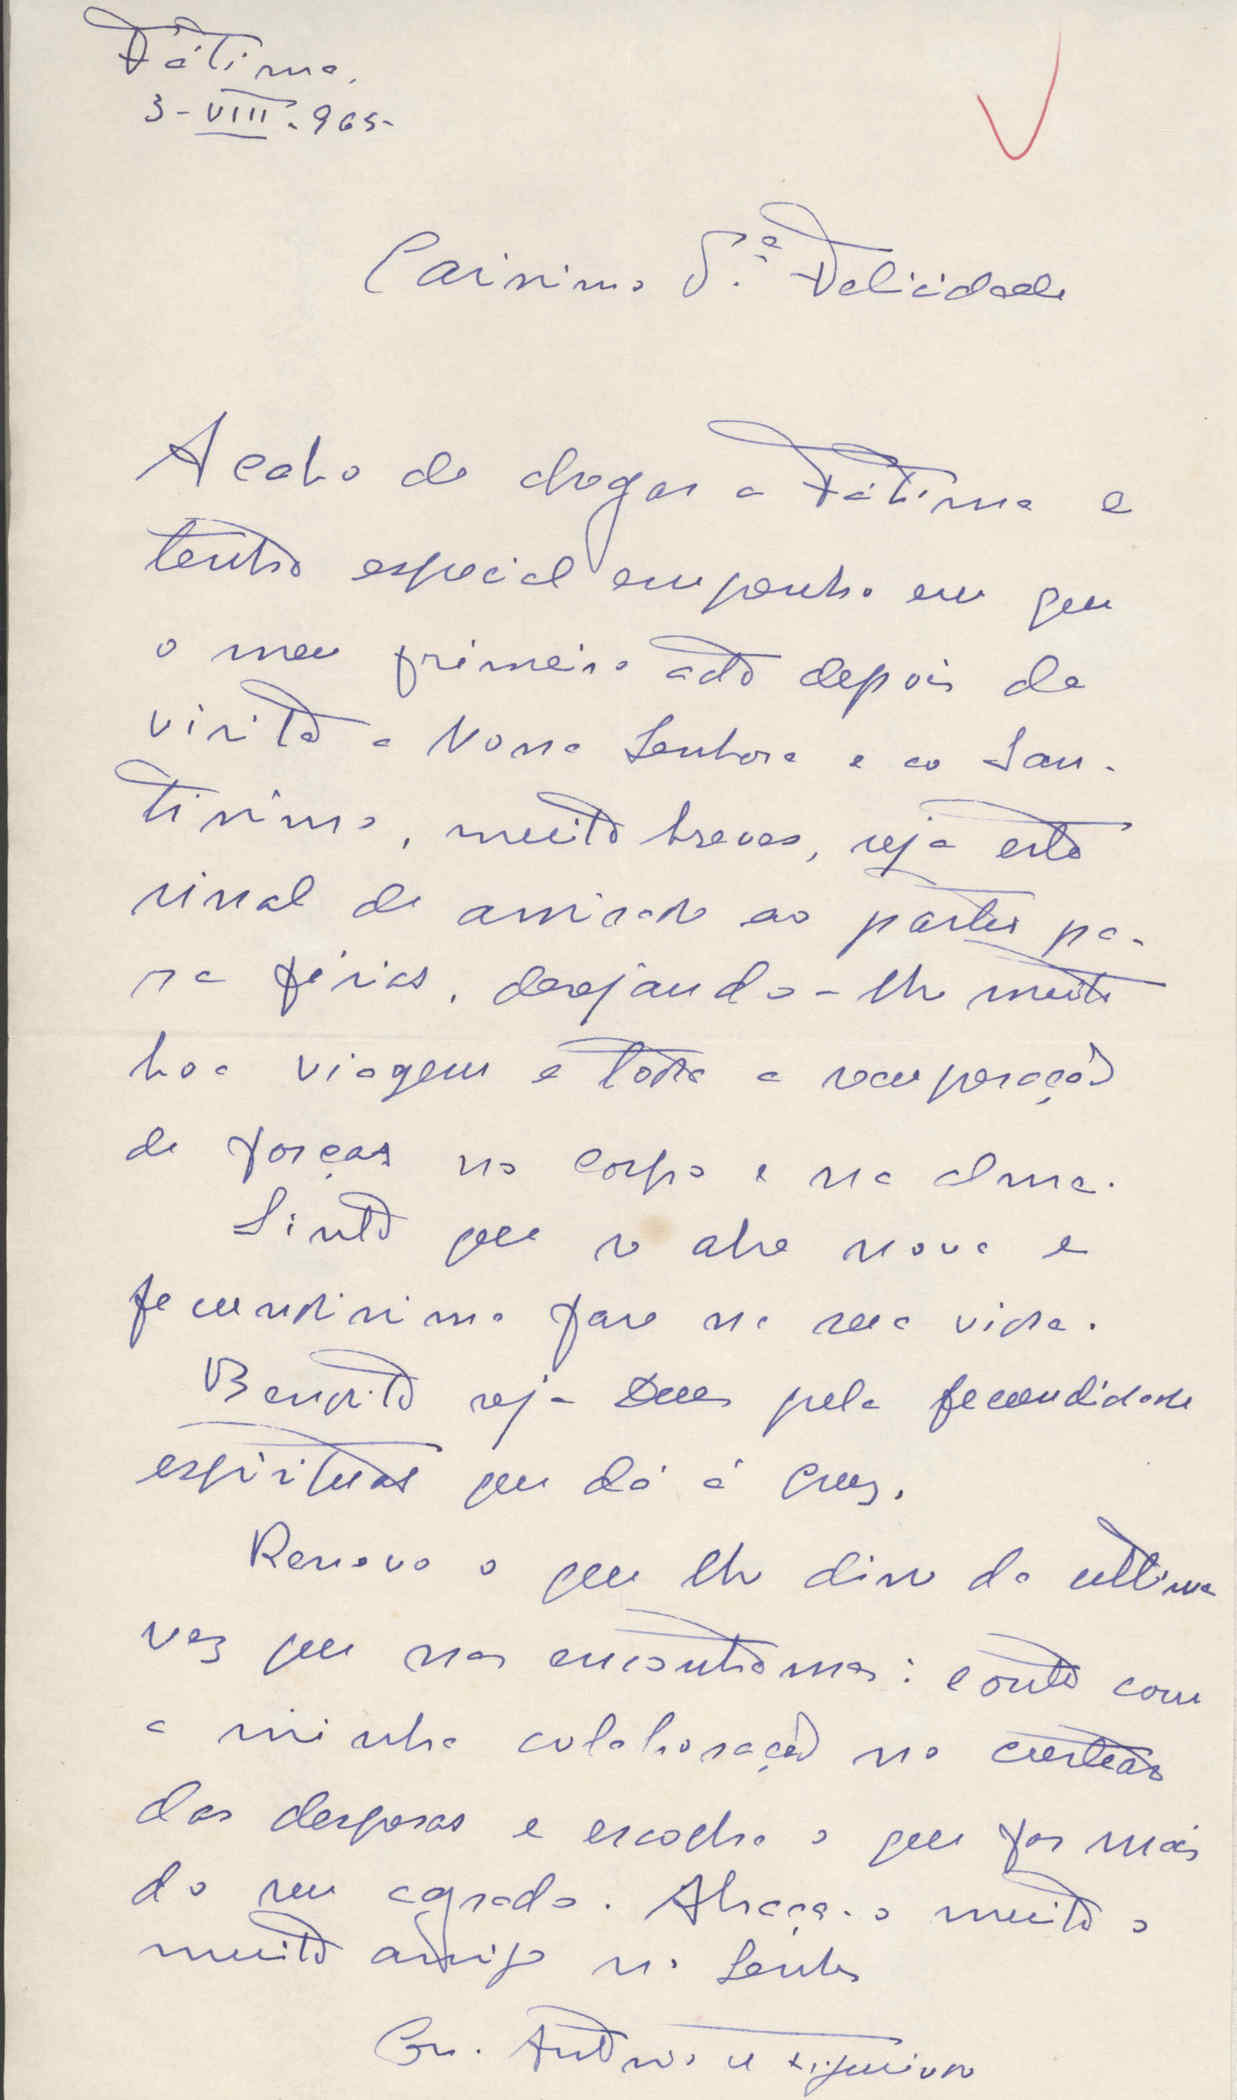 Fátima,
3-VIII-965-
Caríssimo P.ª Felicidade
Acabo de chegar a Fátima e
tenho especial empenho em que
o meu primeiro acto depois da
visita a Nossa Senhora e ao San-
tíssimo, muito breves, seja este
sinal de amizade ao partir pa-
ra férias, desejando-lhe muito
boa viagem e toda a recuperação
de forças no corpo e na alma.
Sinto que se abre nova e
fecundíssima fase na sua vida.
Bendito seja Deus pela fecundidade
espiritual que dá à Cruz.
Renovo o que lhe disse da última
vez que nos encontrámos: conte com
a minha colaboração no custear
das despesas e escolha o que for mais
do seu agrado. Abraça-o muito o
muito amigo no Senhor
Con. António